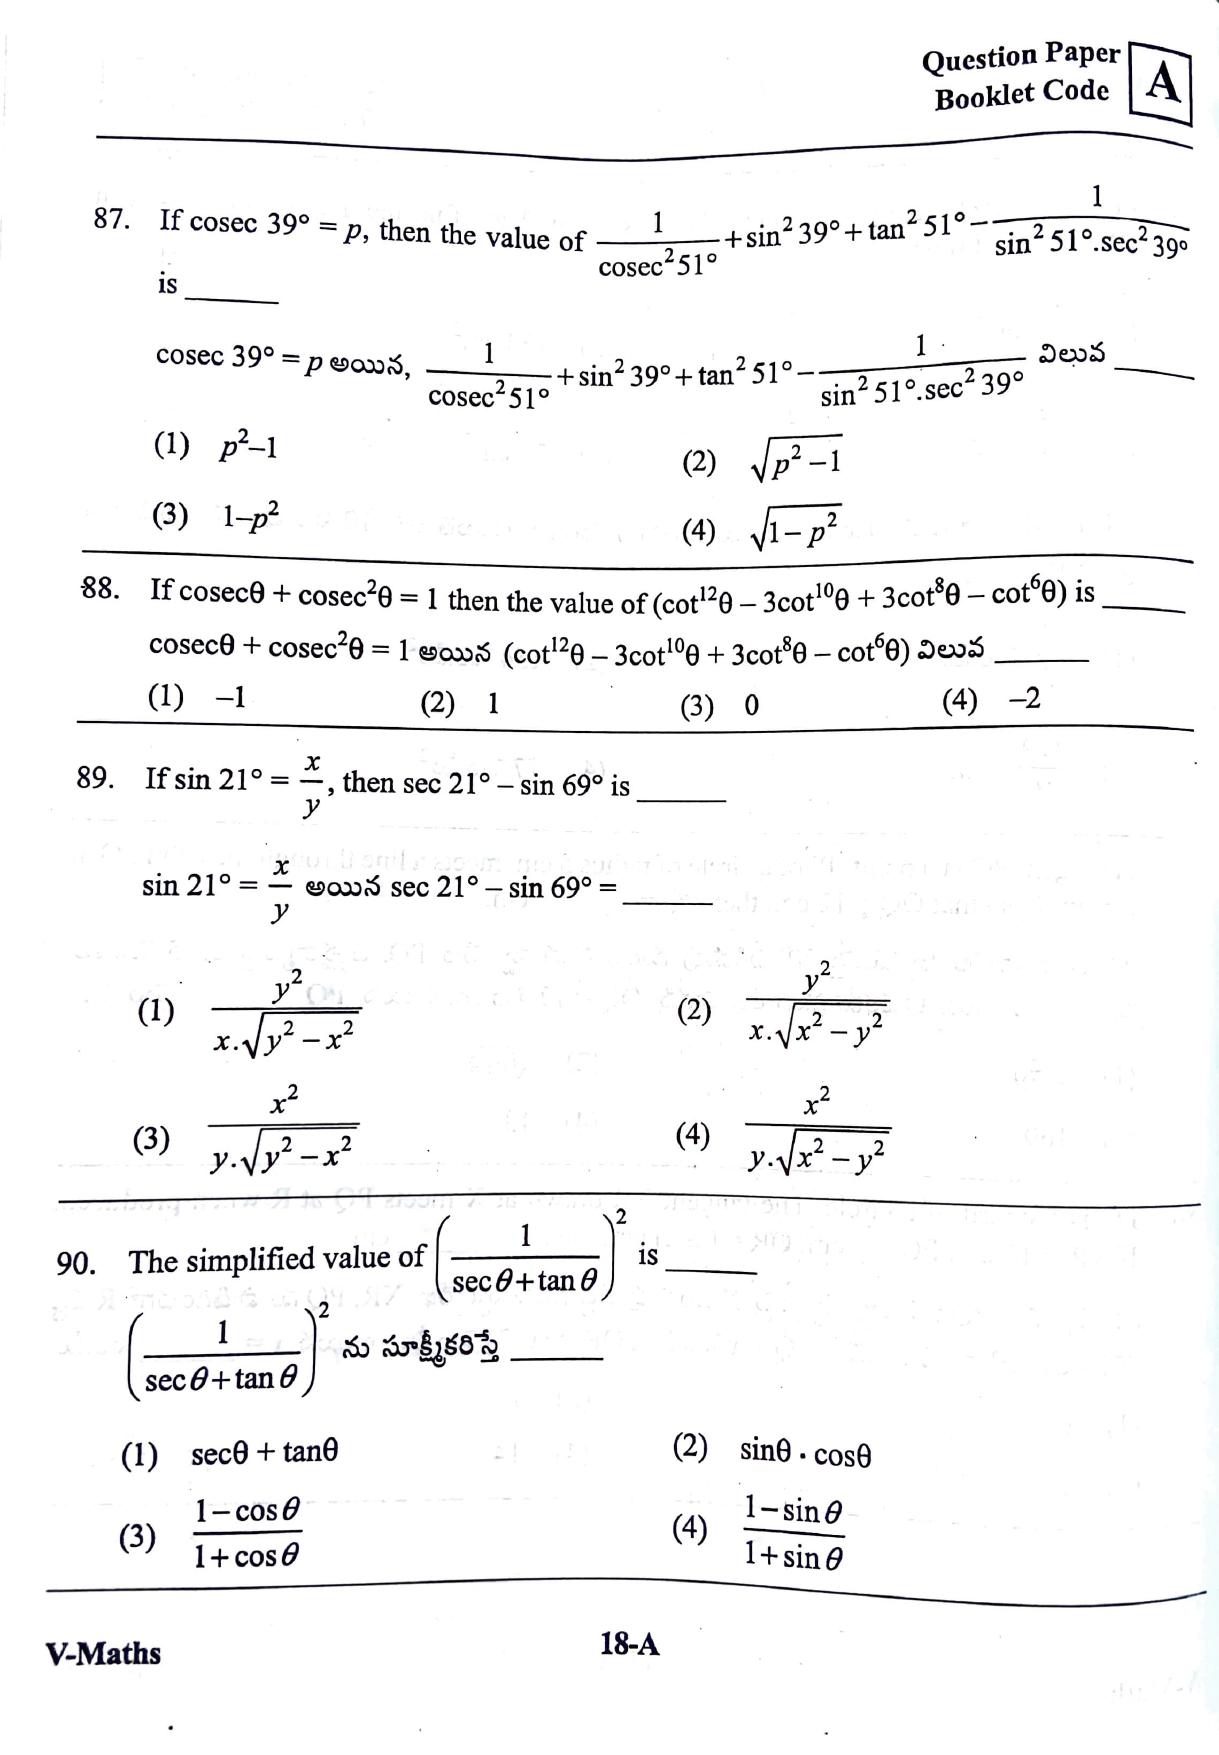 Question Paper
Booklet Code A
87. If cosec 39° = p, then the value of 1/cosec²51° + sin² 39° + tan² 51° − 1/(sin² 51°.sec² 39°)
is ______
cosec 39° = p అయిన, 1/cosec²51° + sin² 39° + tan² 51° − 1/(sin² 51°.sec² 39°) విలువ ______
(1) p²–1 (2) √(p² – 1)
(3) 1–p² (4) √(1 – p²)
88. If cosecθ + cosec²θ = 1 then the value of (cot¹²θ – 3cot¹⁰θ + 3cot⁸θ – cot⁶θ) is ______
cosecθ + cosec²θ = 1 అయిన (cot¹²θ – 3cot¹⁰θ + 3cot⁸θ – cot⁶θ) విలువ ______
(1) –1 (2) 1 (3) 0 (4) –2
89. If sin 21° = x/y, then sec 21° – sin 69° is ______
sin 21° = x/y అయిన sec 21° – sin 69° = ______
(1) y²/(x.√(y² – x²)) (2) y²/(x.√(x² – y²))
(3) x²/(y.√(y² – x²)) (4) x²/(y.√(x² – y²))
90. The simplified value of (1/(sec θ + tan θ))² is ______
(1/(sec θ + tan θ))² ను సూక్ష్మీకరిస్తే ______
(1) secθ + tanθ (2) sinθ . cosθ
(3) (1 – cos θ)/(1 + cos θ) (4) (1 – sin θ)/(1 + sin θ)
V-Maths 18-A